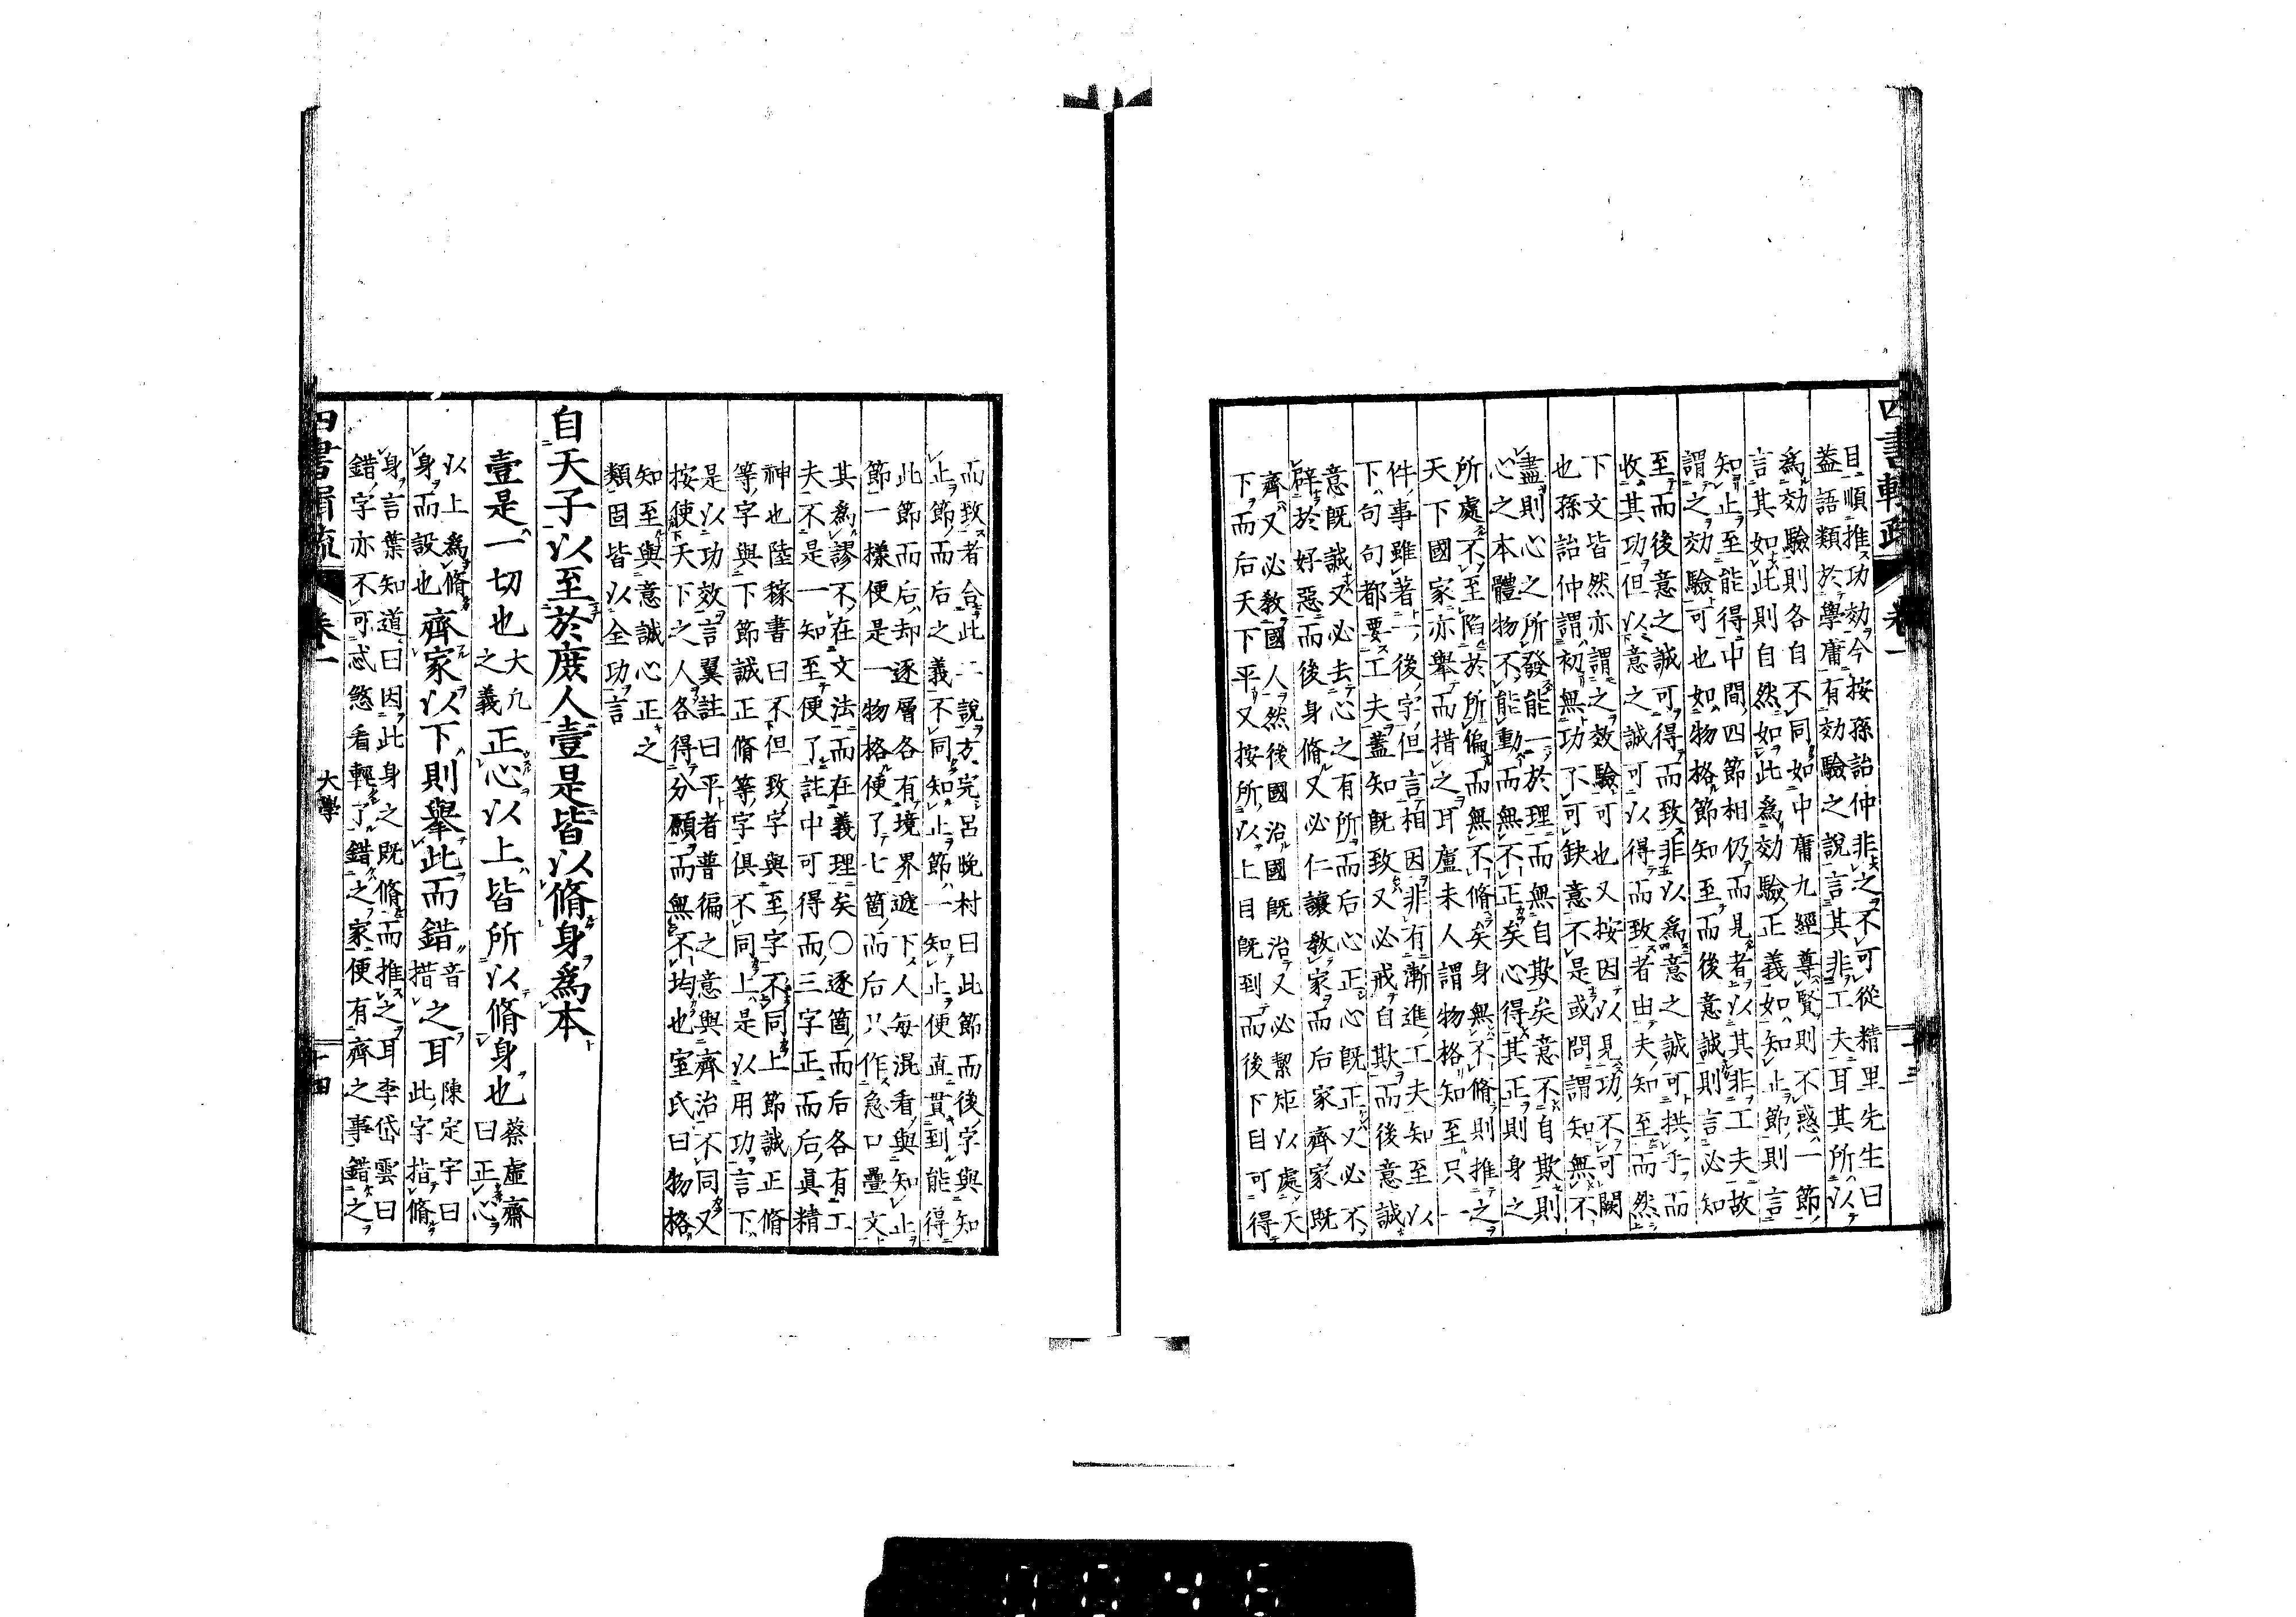 四書輯疏
卷一
目順推功効今按孫詒仲非之不可從精里先生曰
蓋語類於學庸有効驗之說言其非工夫耳其所以
爲効驗則各自不同如中庸九經尊賢則不惑一節
言其如此則自然如此爲効驗正義如知止節則言
知止至能得中間四節相仍而見者以其非工夫故
謂之効驗可也如物格節知至而後意誠則言必知
至而後意之誠可得而致非以爲意之誠可拱手而
收其功但以意之誠可以得而致者由夫知至而然
下文皆然亦謂之效驗可也又按因以見功不可闕
也孫詒仲謂初無功不可缺意不是或問謂知無不
盡則心之所發能一於理而無自欺矣意不自欺則
心之本體物不能動而無不正矣心得其正則身之
所處不至陷於所偏而無不脩矣身無不脩則推之
天下國家亦舉而措之耳盧未人謂物格知至只一
件事雖著一後字但言相因非有漸進工夫知至以
下句句都要工夫蓋知旣致又必戒自欺而後意誠
意旣誠又必去心之有所而后心正心旣正又必不
辟於好惡而後身脩又必仁讓教家而后家齊家旣
齊又必教國人然後國治國旣治又必絜矩以處天
下而后天下平又按所以上目旣到而後下目可得
而致者合此二說方完呂晚村曰此節而後字與知
止節而后之義不同知止節一知止便直貫到能得
此節而后却逐層各有境界遞下人每混看與知止
節一樣便是一物格便了七箇而后只作急口疊文
其爲謬不在文法而在義理矣〇逐箇而后各有工
夫不是一知至便了註中可得而三字正而后眞精
神也陸稼書曰不但致字與至字不同上節誠正脩
等字與下節誠正脩等字俱不同上是以用功言下
是以功效言翼註曰平者普徧之意與齊治不同又
按使天下之人各得分願而無不均也室氏曰物格
知至與意誠心正之
類固皆以全功言
自天子以至於庶人壹是皆以脩身爲本
壹是一切也大凡
之義正心以上皆所以脩身也蔡虛齋
曰正心
以上爲脩
身而設也齊家以下則舉此而錯音
措之耳陳定宇曰
此字指脩
身言葉知道曰因此身之既脩而推之耳李岱雲曰
錯字亦不可忒煞看輕了錯之家便有齊之事錯之
大學